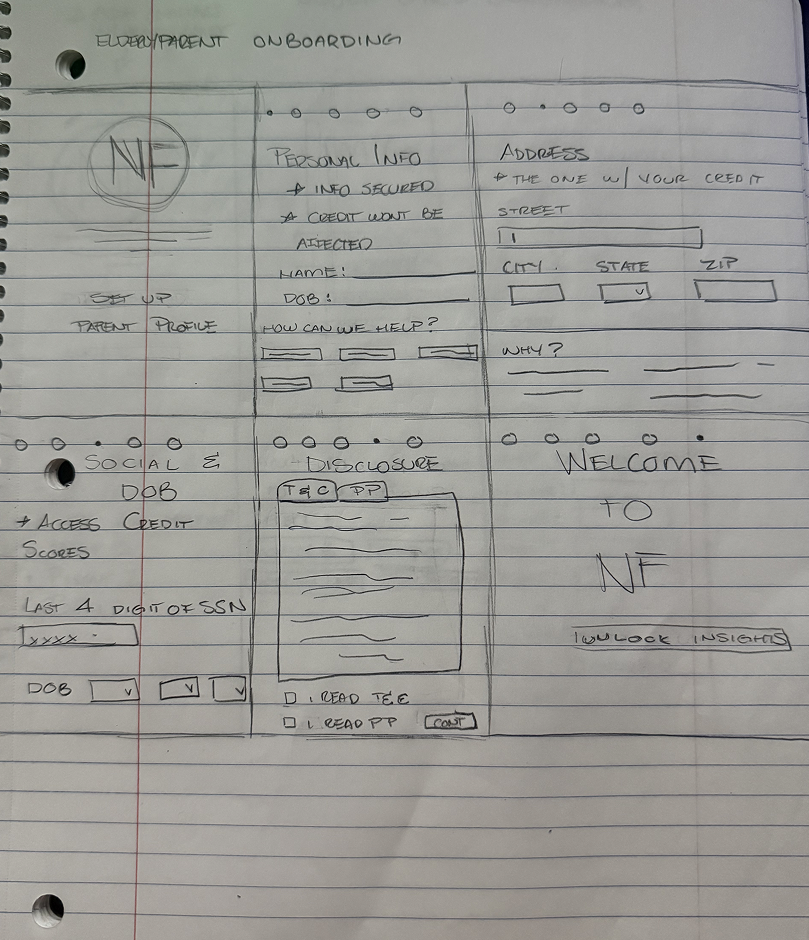 ELDERLY/PARENT ONBOARDING
NF
SET UP
PARENT PROFILE
PERSONAL INFO
* INFO SECURED
* CREDIT WONT BE
AFFECTED
NAME:
DOB:
HOW CAN WE HELP?
ADDRESS
* THE ONE W/ YOUR CREDIT
STREET
CITY. STATE ZIP
WHY?
SOCIAL &
DOB
* ACCESS CREDIT
SCORES
LAST 4 DIGIT OF SSN
XXXX
DOB
DISCLOSURE
T&C PP
I READ T&C
I READ PP CONT
WELCOME
TO
NF
UNLOCK INSIGHTS